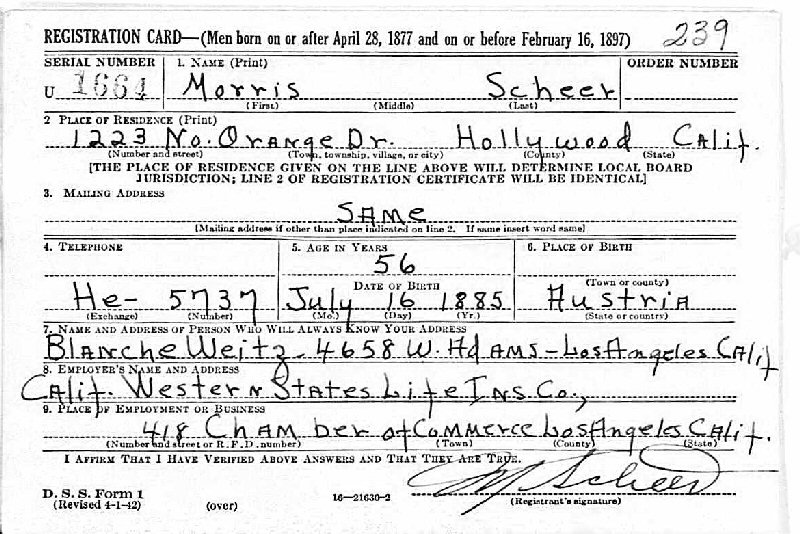 REGISTRATION CARD—(Men born on or after April 28, 1877 and on or before February 16, 1897) 239
SERIAL NUMBER 1. NAME (Print) ORDER NUMBER
U 1664 Morris Scheer
(First) (Middle) (Last)
2 PLACE OF RESIDENCE (Print)
1223 No. Orange Dr. Hollywood Calif.
(Number and street) (Town, township, village, or city) (County) (State)
[THE PLACE OF RESIDENCE GIVEN ON THE LINE ABOVE WILL DETERMINE LOCAL BOARD
JURISDICTION; LINE 2 OF REGISTRATION CERTIFICATE WILL BE IDENTICAL]
3. MAILING ADDRESS
SAME
[Mailing address if other than place indicated on line 2. If same insert word same]
4. TELEPHONE 5. AGE IN YEARS 6. PLACE OF BIRTH
56
DATE OF BIRTH (Town or county)
He- 5737 July 16 1885 Austria
(Exchange) (Number) (Mo.) (Day) (Yr.) (State or country)
7. NAME AND ADDRESS OF PERSON WHO WILL ALWAYS KNOW YOUR ADDRESS
Blanche Weitz - 4658 W. Adams - Los Angeles Calif
8. EMPLOYER'S NAME AND ADDRESS
Calif. Western States Life Ins. Co.,
9. PLACE OF EMPLOYMENT OR BUSINESS
418 Cham ber of Commerce Los Angeles Calif.
(Number and street or R. F. D. number) (Town) (County) (State)
I AFFIRM THAT I HAVE VERIFIED ABOVE ANSWERS AND THAT THEY ARE TRUE.
M Scheer
D. S. S. Form 1 16—21630-2
(Registrant's signature)
(Revised 4-1-42) (over)